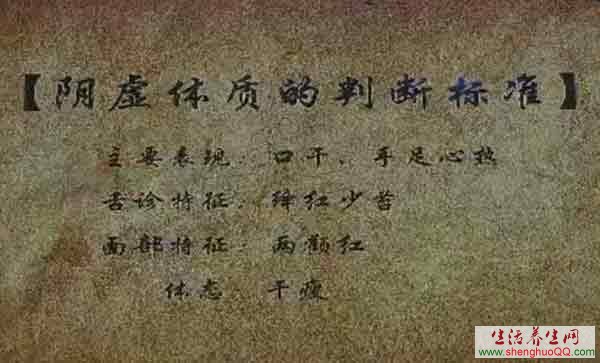 【阴虚体质的判断标准】
主要表现：口干、手足心热
舌诊特征：绛红少苔
面部特征：两颧红
体态 干瘦
生活养生网
www.shenghuoQQ.com